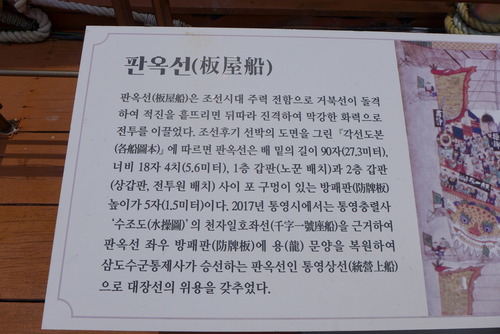 판옥선(板屋船)
판옥선(板屋船)은 조선시대 주력 전함으로 거북선이 돌격
하여 적진을 흩뜨리면 뒤따라 진격하여 막강한 화력으로
전투를 이끌었다. 조선후기 선박의 도면을 그린 『각선도본
(各船圖本)』에 따르면 판옥선은 배 밑의 길이 90자(27.3미터),
너비 18자 4치(5.6미터), 1층 갑판(노꾼 배치)과 2층 갑판
(상갑판, 전투원 배치) 사이 포 구멍이 있는 방패판(防牌板)
높이가 5자(1.5미터)이다. 2017년 통영시에서는 통영충렬사
‘수조도(水操圖)’의 천자일호좌선(千字一號座船)을 근거하여
판옥선 좌우 방패판(防牌板)에 용(龍) 문양을 복원하여
삼도수군통제사가 승선하는 판옥선인 통영상선(統營上船)
으로 대장선의 위용을 갖추었다.